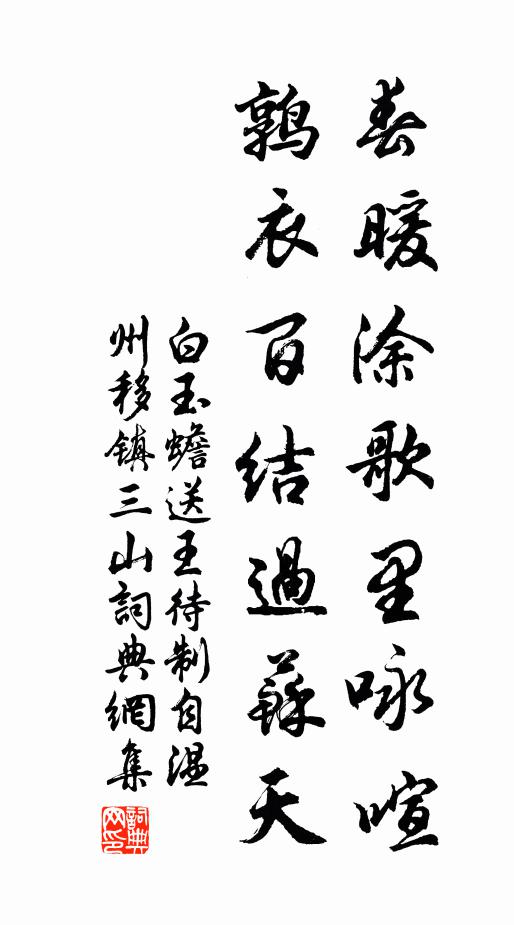 春暖涂歌里咏喧
鹑衣百结過蘇天
白玉蟾送王待制自温
州移镇三山詞典網集
詞典网印